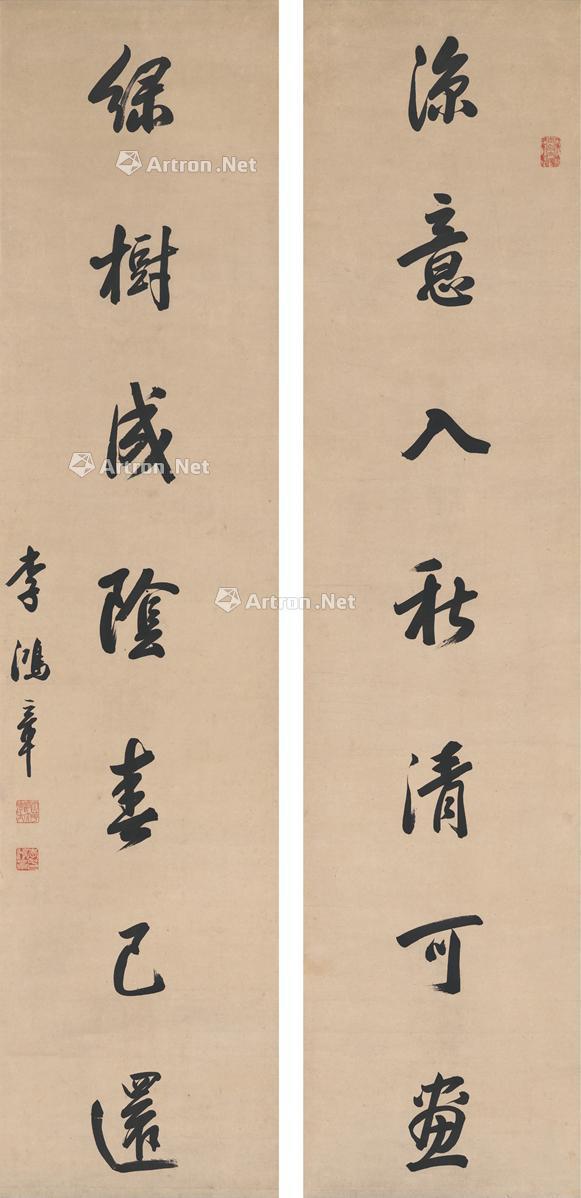 涼意入秋清可畫
綠樹成陰春已還
李鴻章
Artron.Net
Artron.Net
Artron.Net